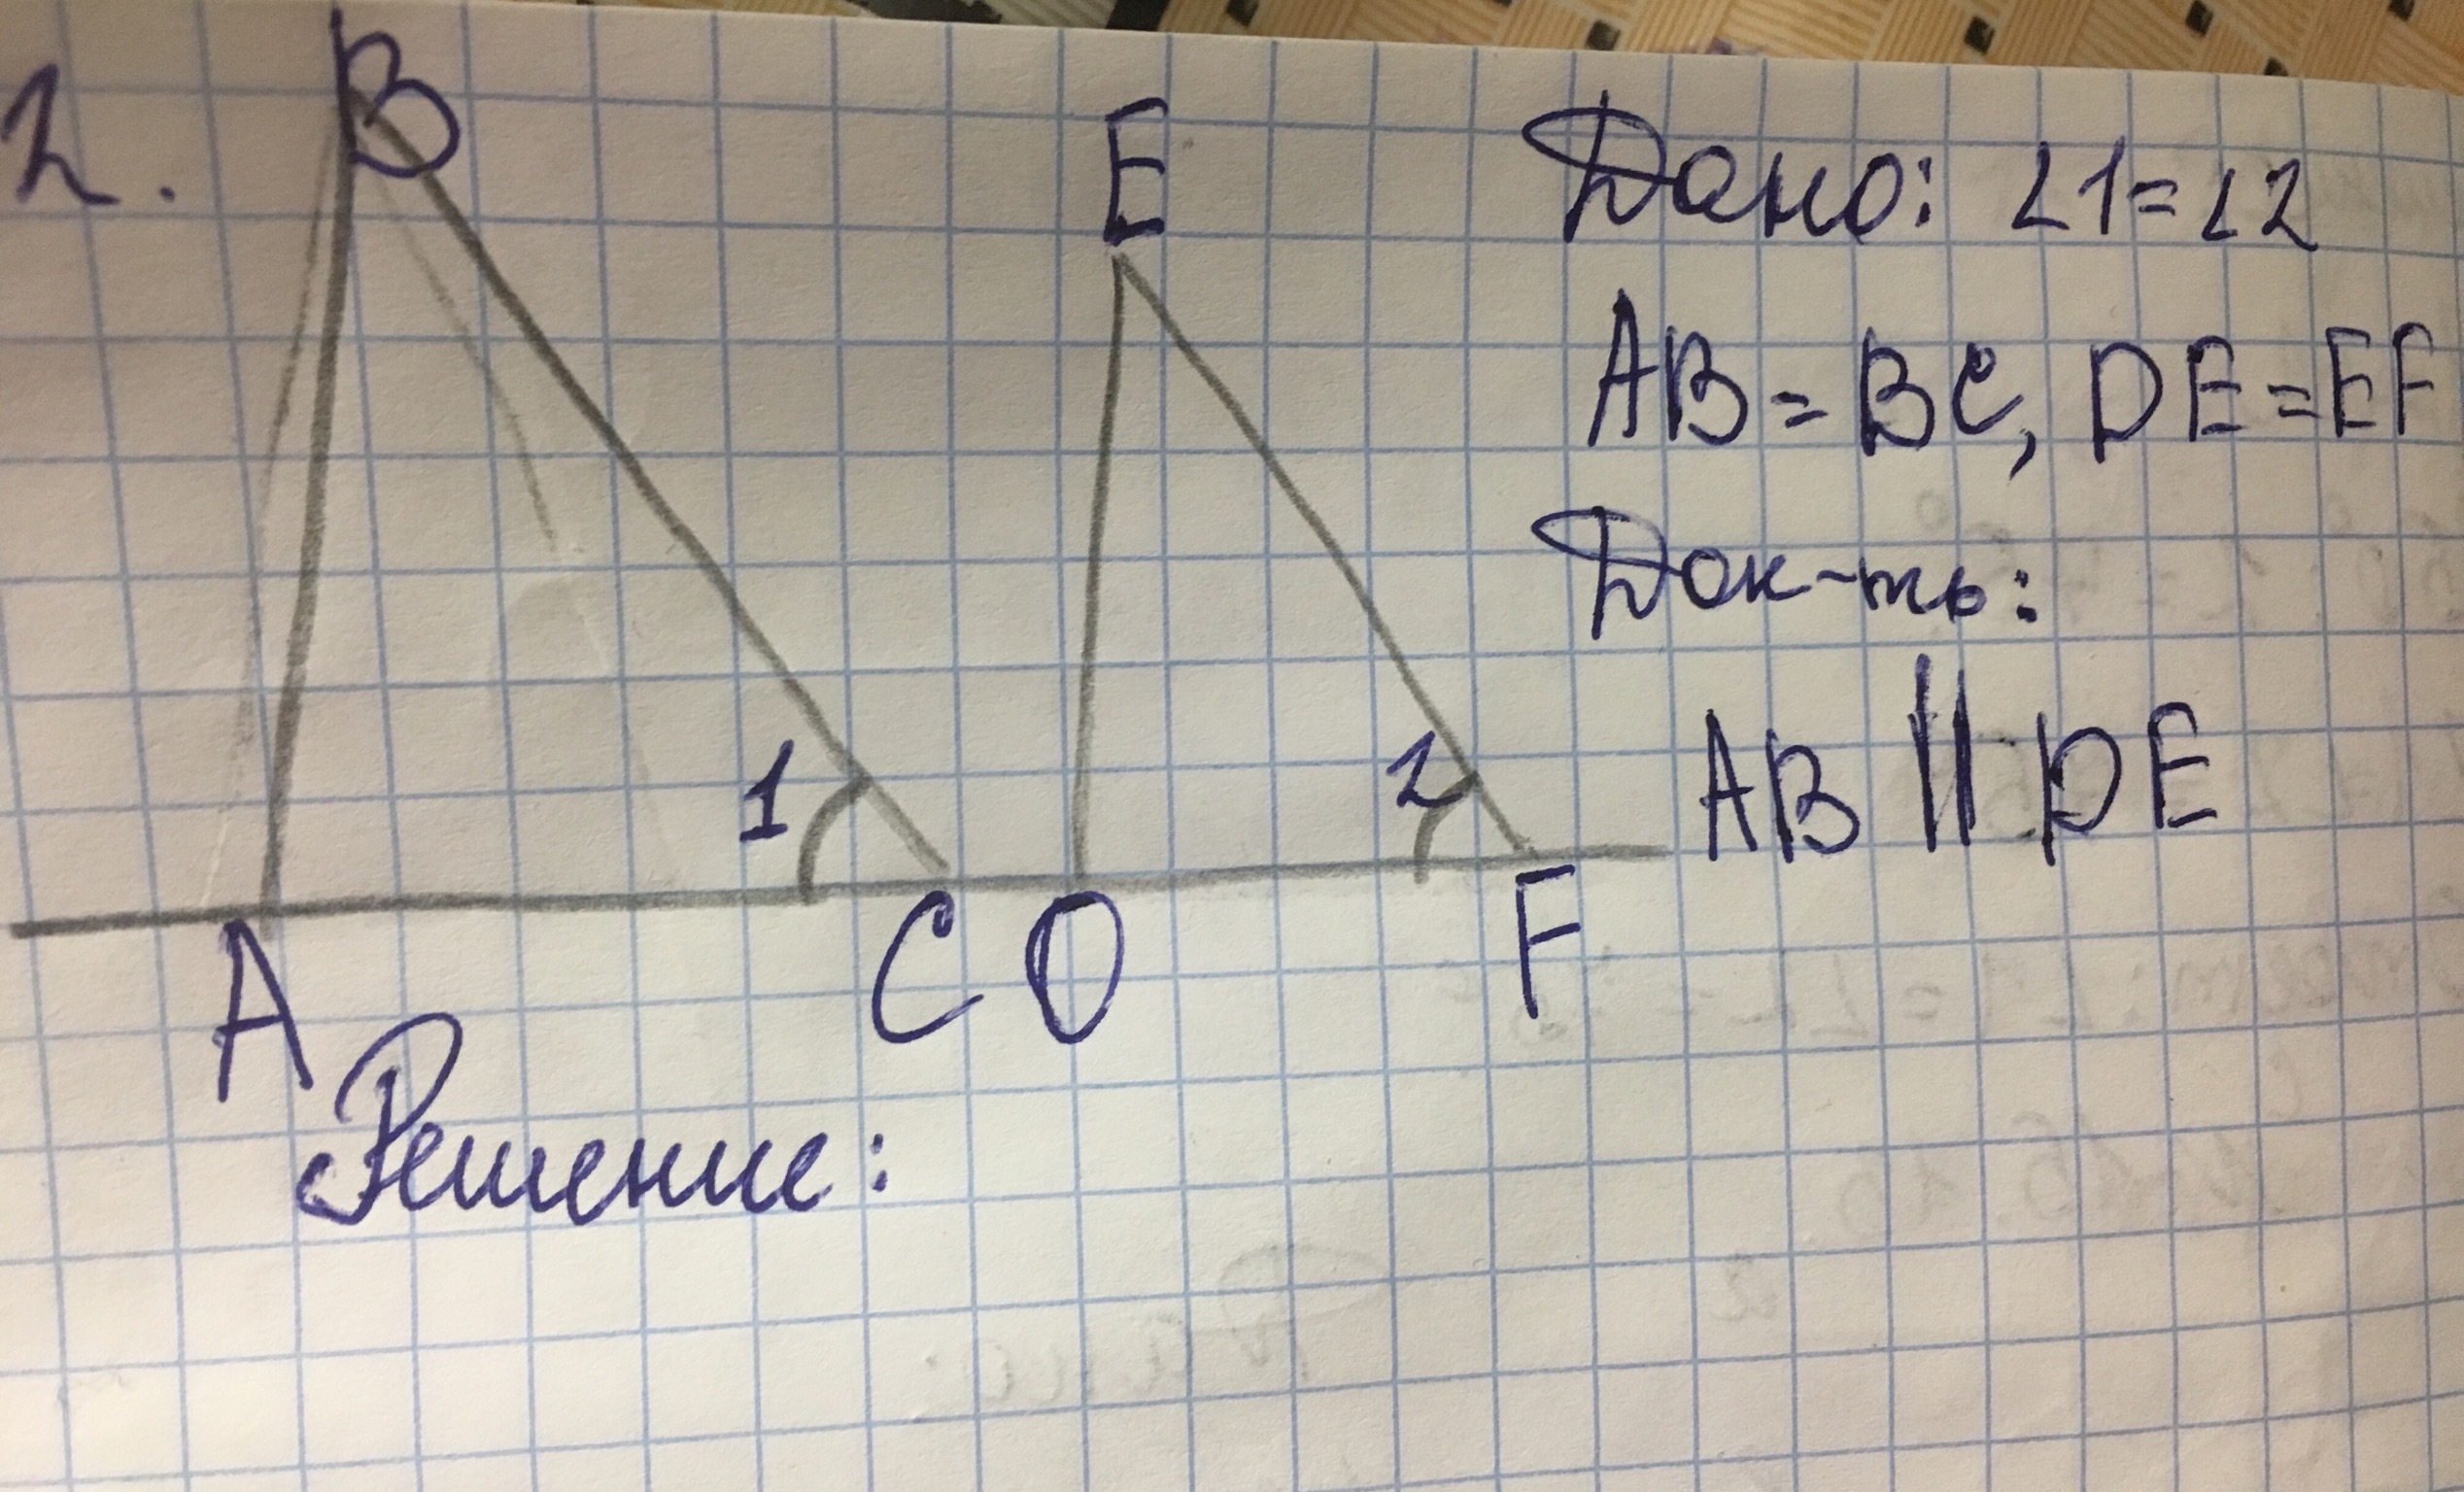 2.
B
E
Дано: ∠1=∠2
AB = BC, DE = EF
Док-ть:
AB || DE
1
2
A
C
D
F
Решение: